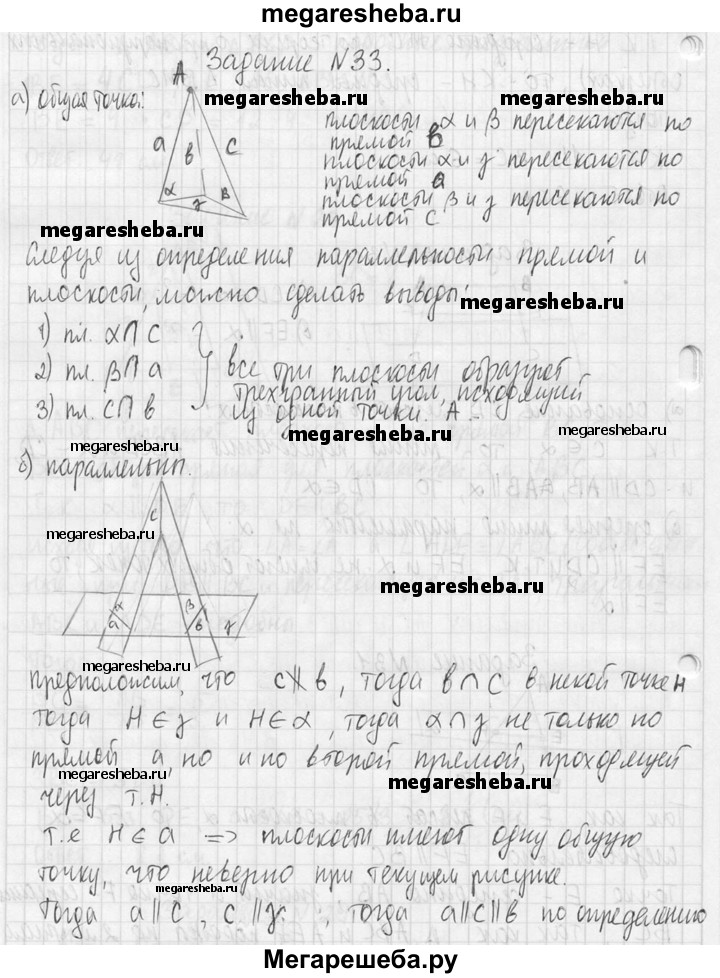 megaresheba.ru
Задание №33.
а) Общая точка:
A
a
в
c
α
γ
β
megaresheba.ru
megaresheba.ru
плоскости α и β пересекаются по
прямой в
плоскости α и γ пересекаются по
прямой а
плоскости β и γ пересекаются по
прямой с
megaresheba.ru
Следуя из определения параллельности прямой и
плоскости, можно сделать выводы:
megaresheba.ru
1) пл. α∩с
2) пл. β∩а
3) пл. с∩в
все три плоскости образует
трехгранный угол, исходящий
из одной точки А
megaresheba.ru
megaresheba.ru
megaresheba.ru
б) параллельны.
megaresheba.ru
c
α
a
β
в
γ
megaresheba.ru
megaresheba.ru
предположим, что с∦в, тогда в∩с в некой точке Н
тогда Н∈γ и Н∈α, тогда α∩γ не только по
прямой а, но и по второй прямой, проходящей
megaresheba.ru
megaresheba.ru
через т.Н.
т.е Н∈а => плоскости имеют одну общую
точку, что неверно при текущем рисунке.
megaresheba.ru
Тогда а∥с, с∥γ, тогда а∥с∥в по определению
Мегарешеба.ру